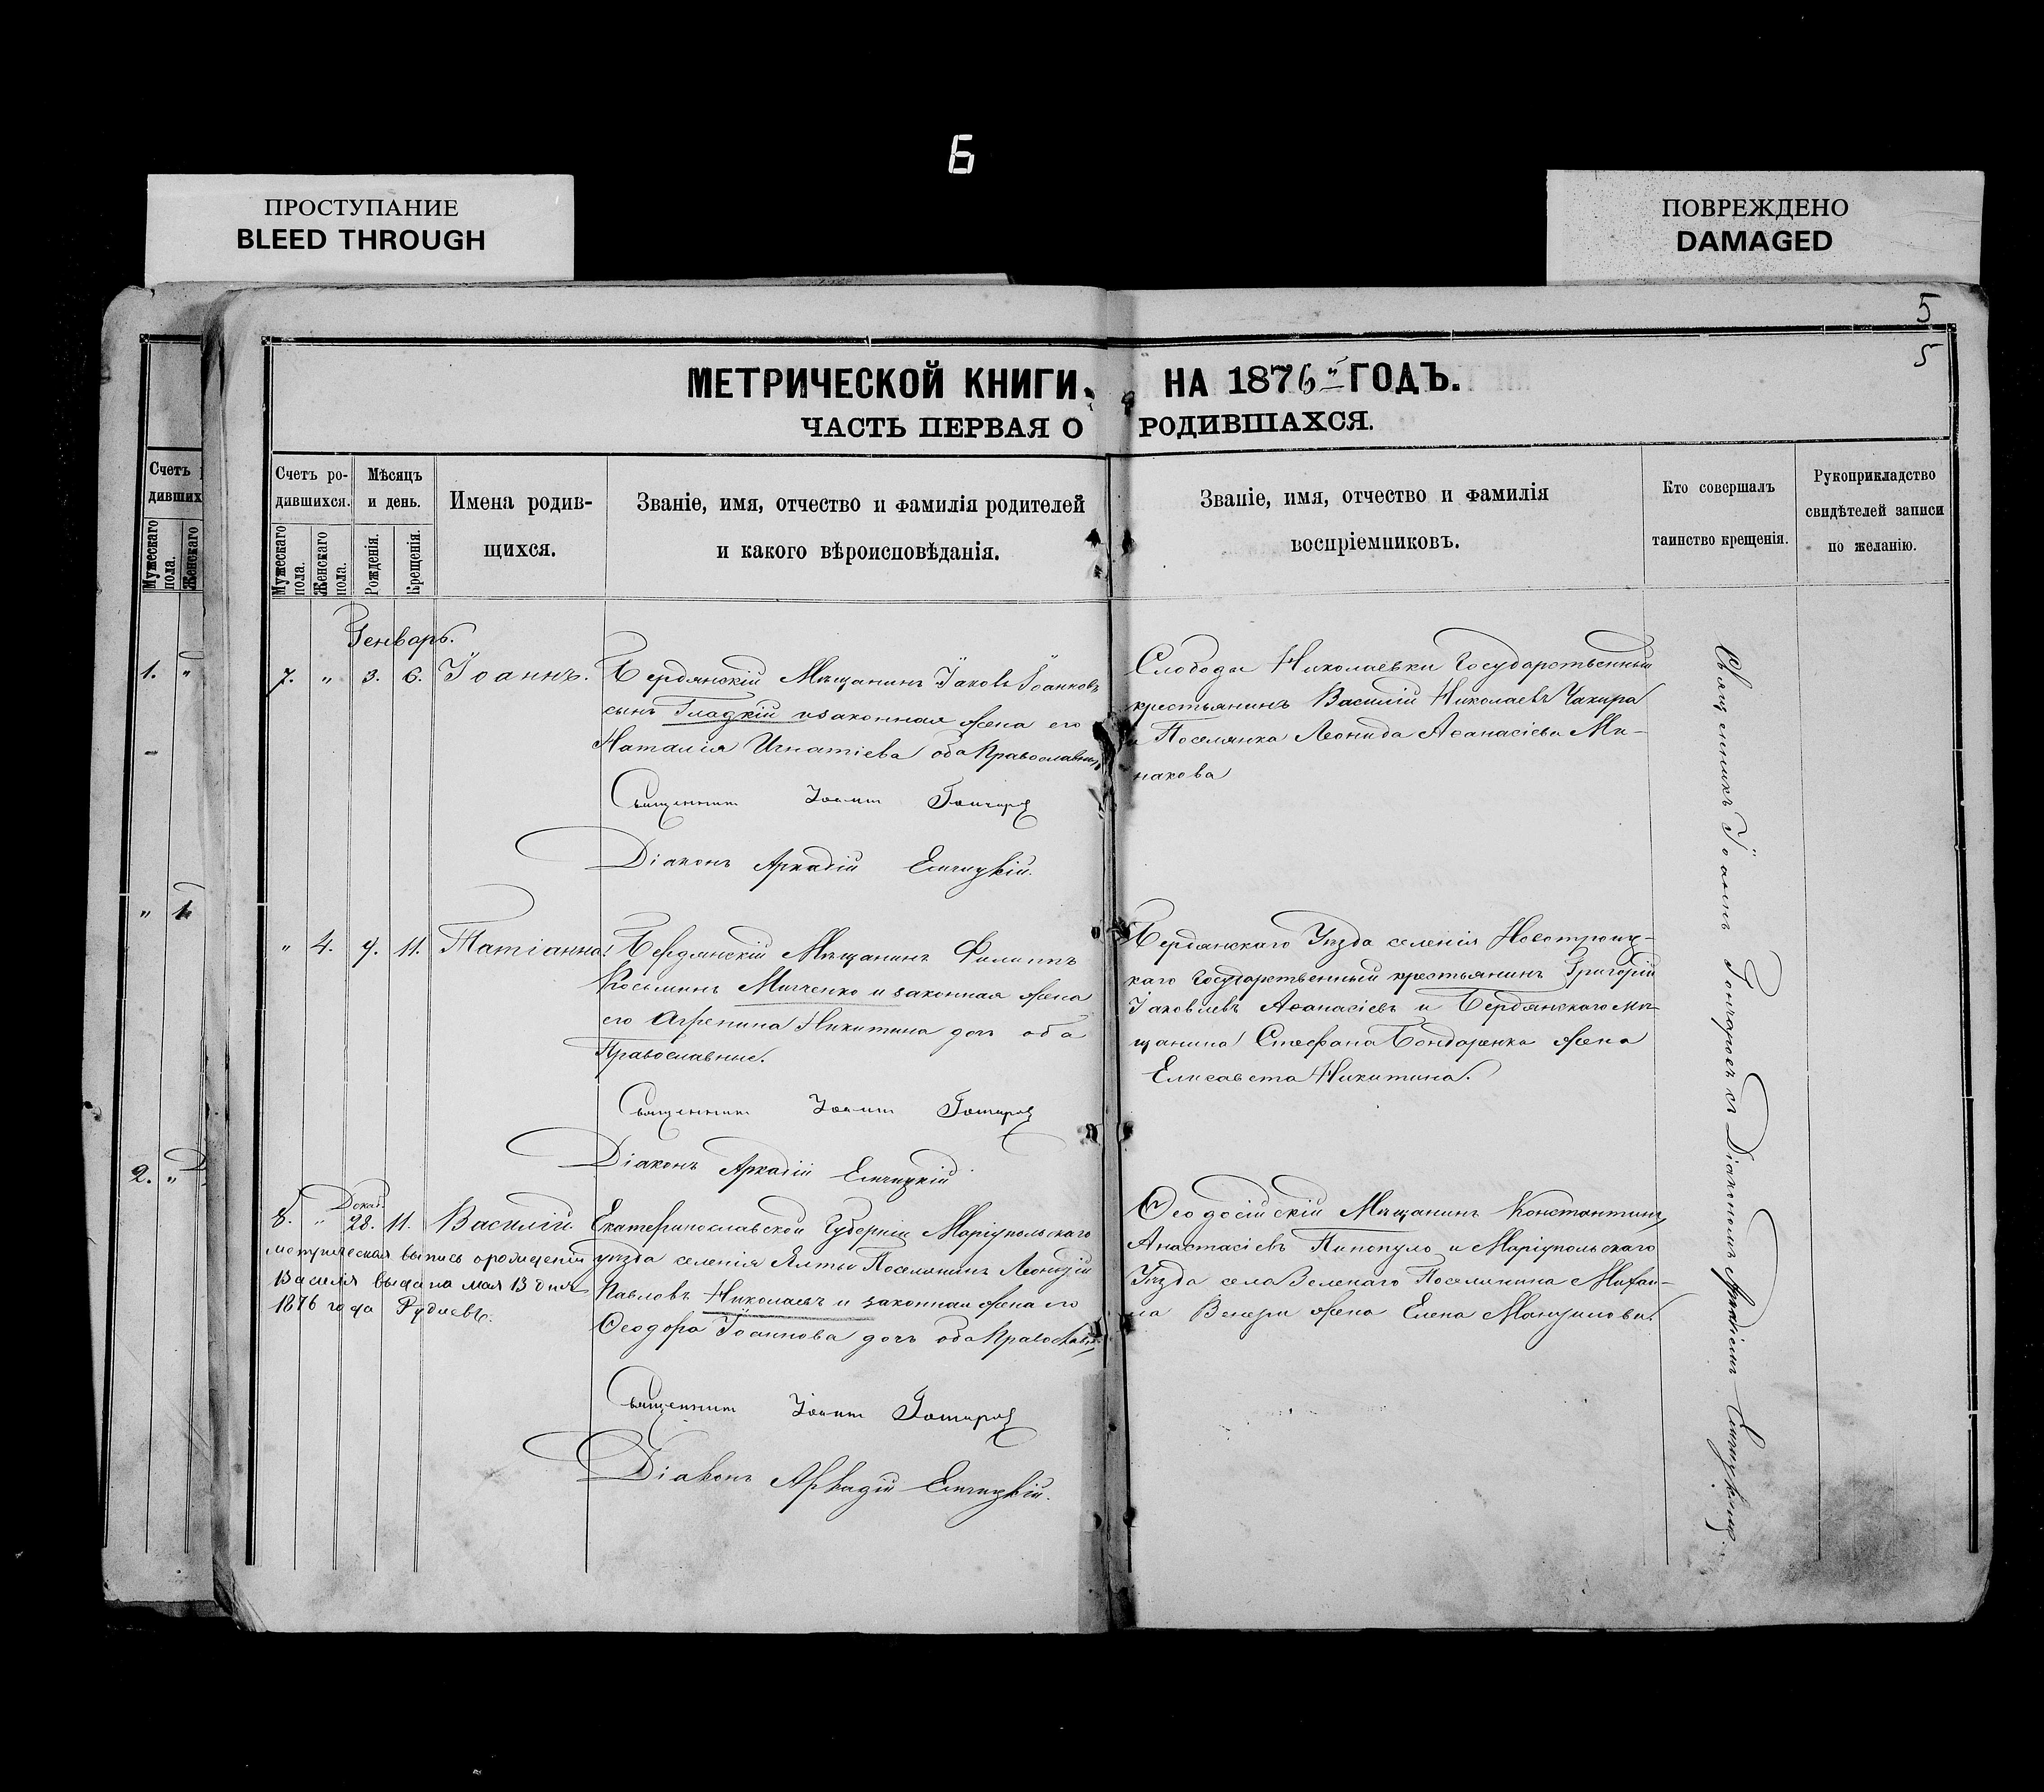 6
ПРОСТУПАНИЕ
BLEED THROUGH
ПОВРЕЖДЕНО
DAMAGED
5
5
МЕТРИЧЕСКОЙ КНИГИ, НА 1876 ГОДЪ.
ЧАСТЬ ПЕРВАЯ О РОДИВШАХСЯ.
Счетъ
дивших
Мужескаго пола.
Женскаго
1. "
" 1.
2. "
Счетъ ро-
дившихся.
Мужескаго пола.
Женскаго пола.
Мѣсяцъ
и день.
Рожденія.
Крещенія.
Имена родив-
щихся.
Званіе, имя, отчество и фамилія родителей
и какого вѣроисповѣданія.
Званіе, имя, отчество и фамилія
воспріемниковъ.
Кто совершалъ
таинство крещенія.
Рукоприкладство
свидѣтелей записи
по желанію.
Генварь.
7. " 3. 6. Іоаннъ.
Бердянскій Мѣщанинъ Іаковъ Іоанновъ
сынъ Гладкій и законная жена его
Наталія Игнатіева оба Православные
Священникъ Іоаннъ Гончаровъ
Діаконъ Аркадій
Слободы Николаевки Государственный
крестьянинъ Василій Николаевъ Чакира
и Поселянка Леонида Аѳанасіева Ми-
накова
" 4. 7. 11. Татіанна.
Бердянскій Мѣщанинъ Филиппъ
Косьминъ Митченко и законная жена
его Агрепина Никитина доч оба
Православные.
Священникъ Іоаннъ Гончаровъ
Діаконъ Аркадій
Бердянскаго Уѣзда селенія Новотроиц-
каго Государственный крестьянинъ Григорій
Іаковлевъ Аѳанасіевъ и Бердянскаго мѣ-
щанина Стефана Бондаренка жена
Елисавета Никитина.
Декаб.
8. " 28. 11. Василій.
метрическая выпись о рожденіи
Василія выдана мая 13 дня
1876 года Рудиевъ.
Екатеринославской Губерніи Маріупольскаго
уѣзда селенія Ялты Поселянинъ Леонтій
Павловъ Николаевъ и законная жена его
Ѳеодора Іоаннова дочь оба Православн.
Священникъ Іоаннъ Гончаровъ
Діаконъ Аркадій
Ѳеодосійскій Мѣщанинъ Константинъ
Анастасіевъ Пипопуло и Маріупольскаго
Уѣзда села Зеленаго Поселянина Михаи-
ла Венери жена Елена Мануилова.
Священникъ Іоаннъ Гончаровъ съ Діакономъ Аркадіемъ